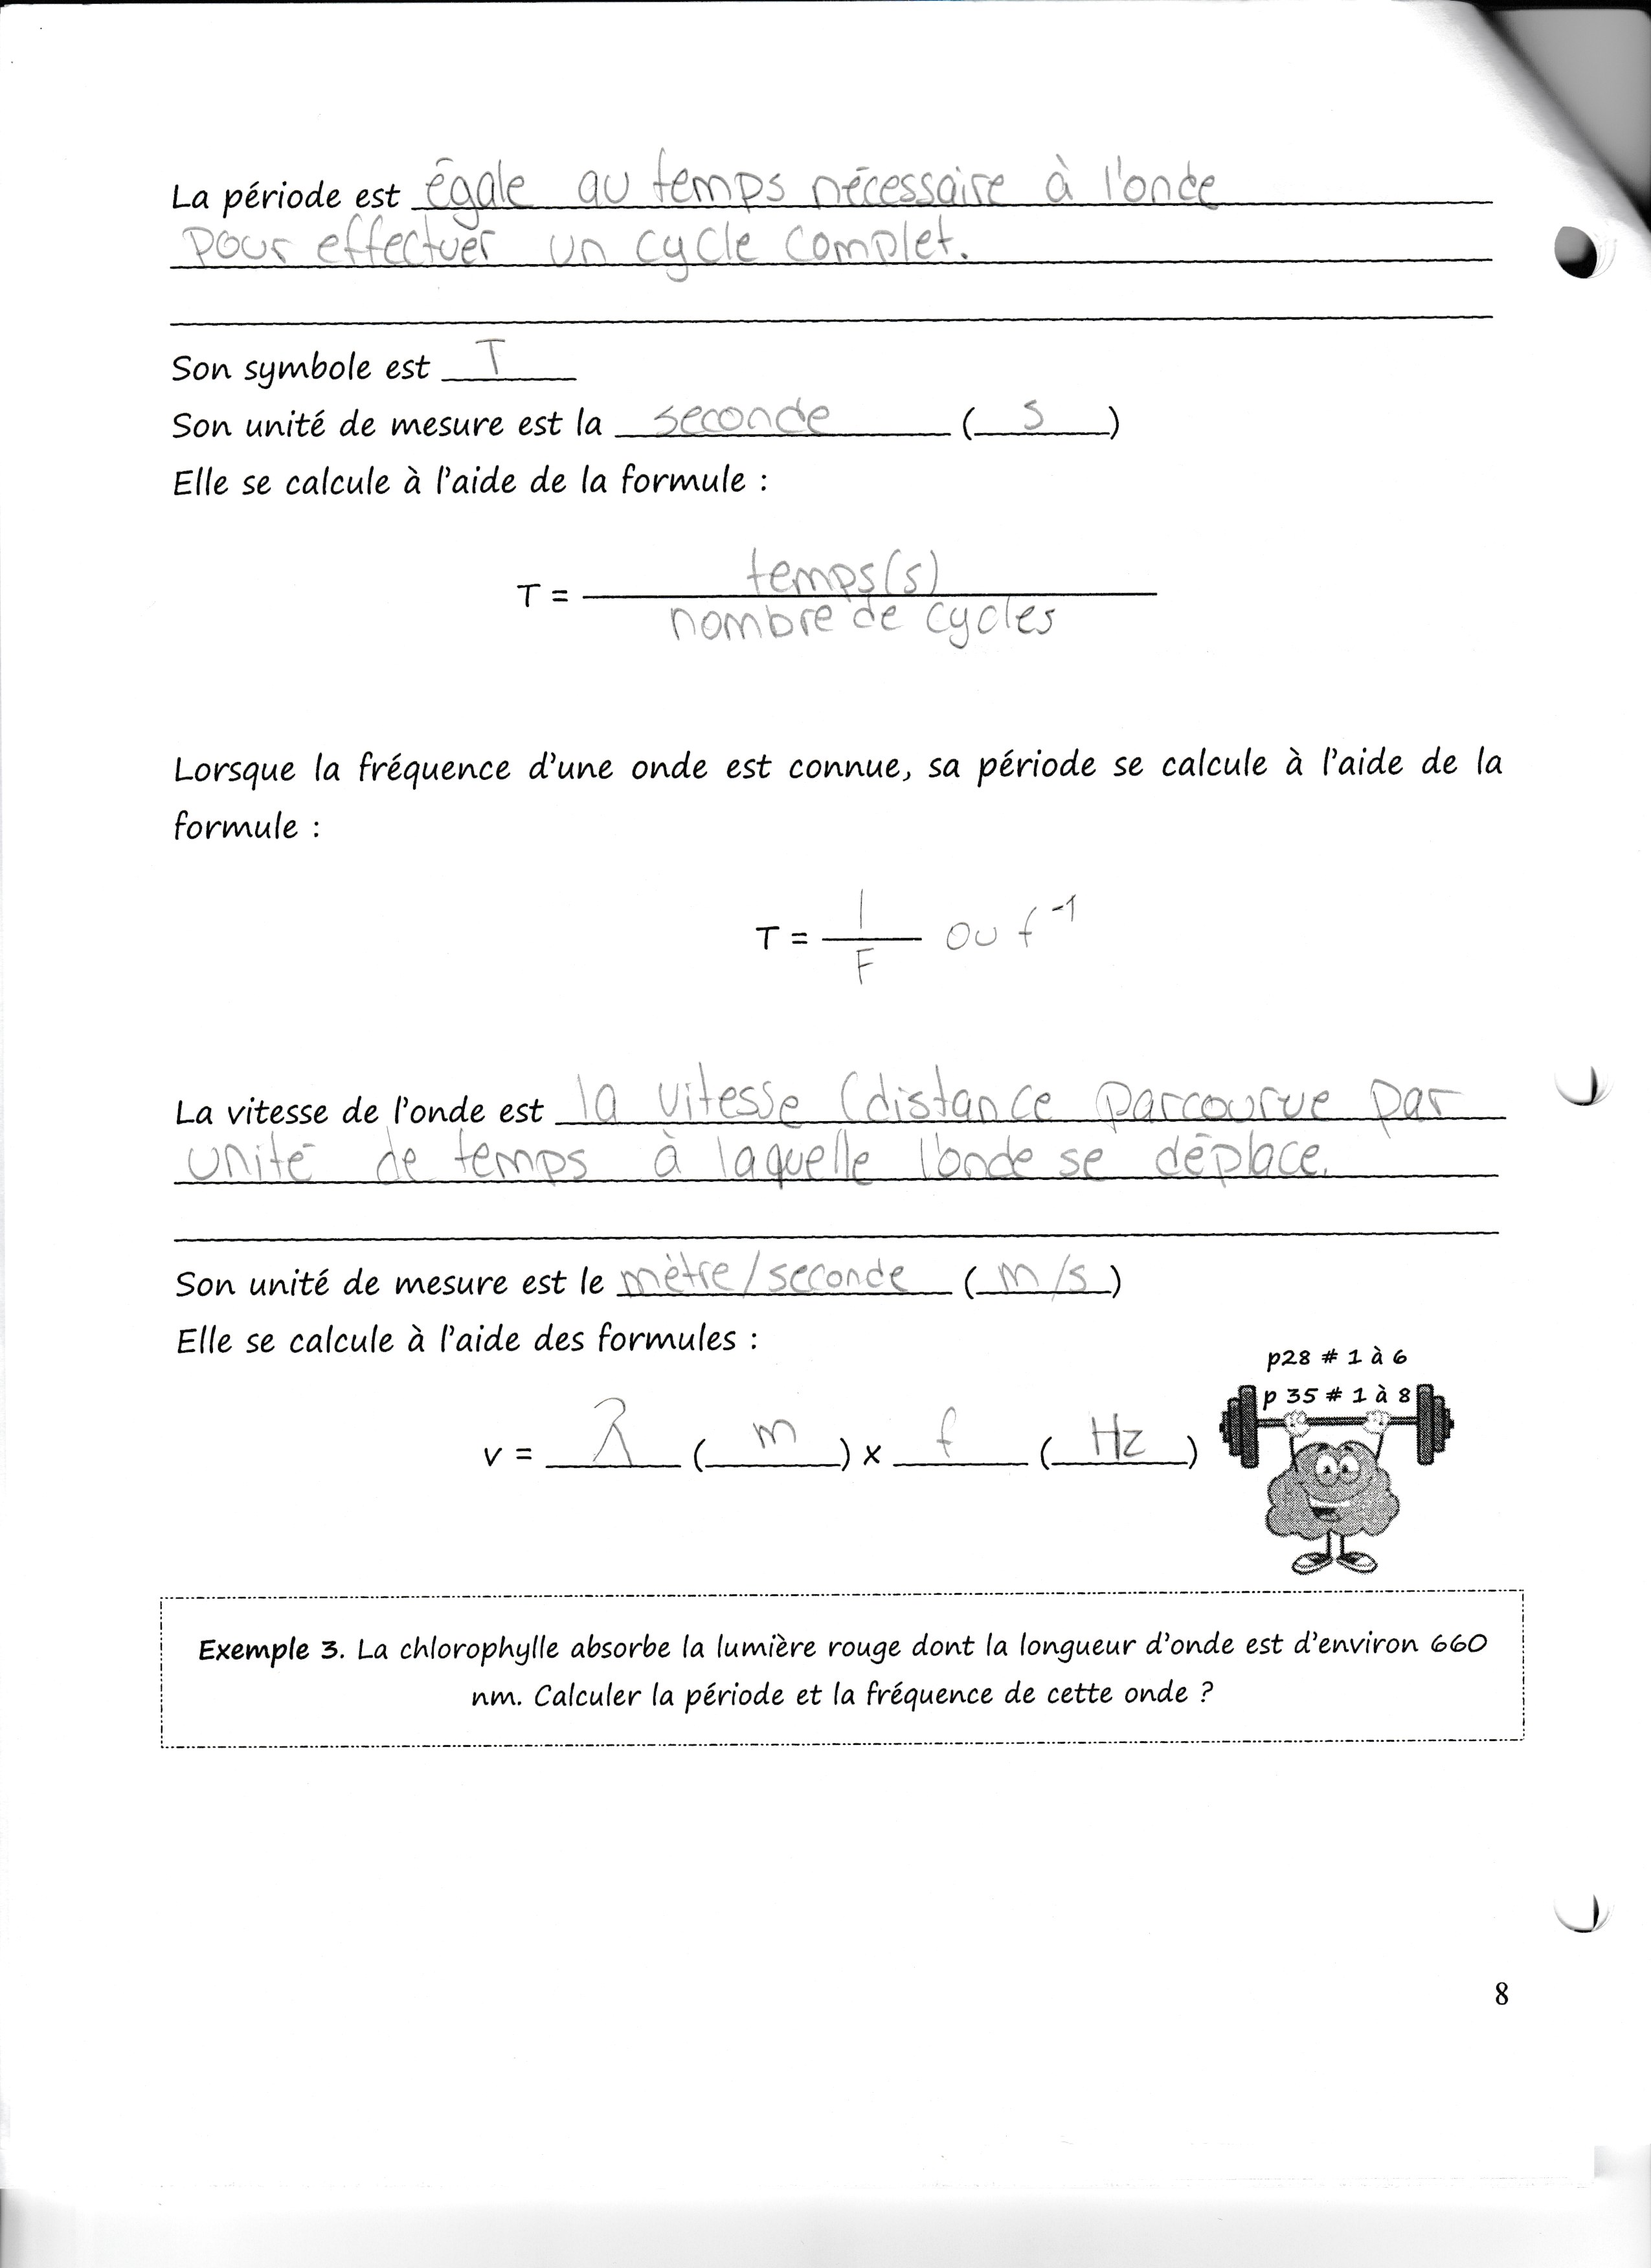 La période est égale au temps nécessaire à l'onde
pour effectuer un cycle complet.
Son symbole est T
Son unité de mesure est la seconde (s)
Elle se calcule à l'aide de la formule :
temps(s)
T =
nombre de cycles
Lorsque la fréquence d'une onde est connue, sa période se calcule à l'aide de la
formule :
1
T = ou f⁻¹
F
La vitesse de l'onde est la vitesse (distance parcourue par
unité de temps à laquelle l'onde se déplace.
Son unité de mesure est le mètre/seconde (m/s)
Elle se calcule à l'aide des formules :
p28 # 1 à 6
p 35 # 1 à 8
v = λ (m) x f (Hz)
Exemple 3. La chlorophylle absorbe la lumière rouge dont la longueur d'onde est d'environ 660
nm. Calculer la période et la fréquence de cette onde ?
8